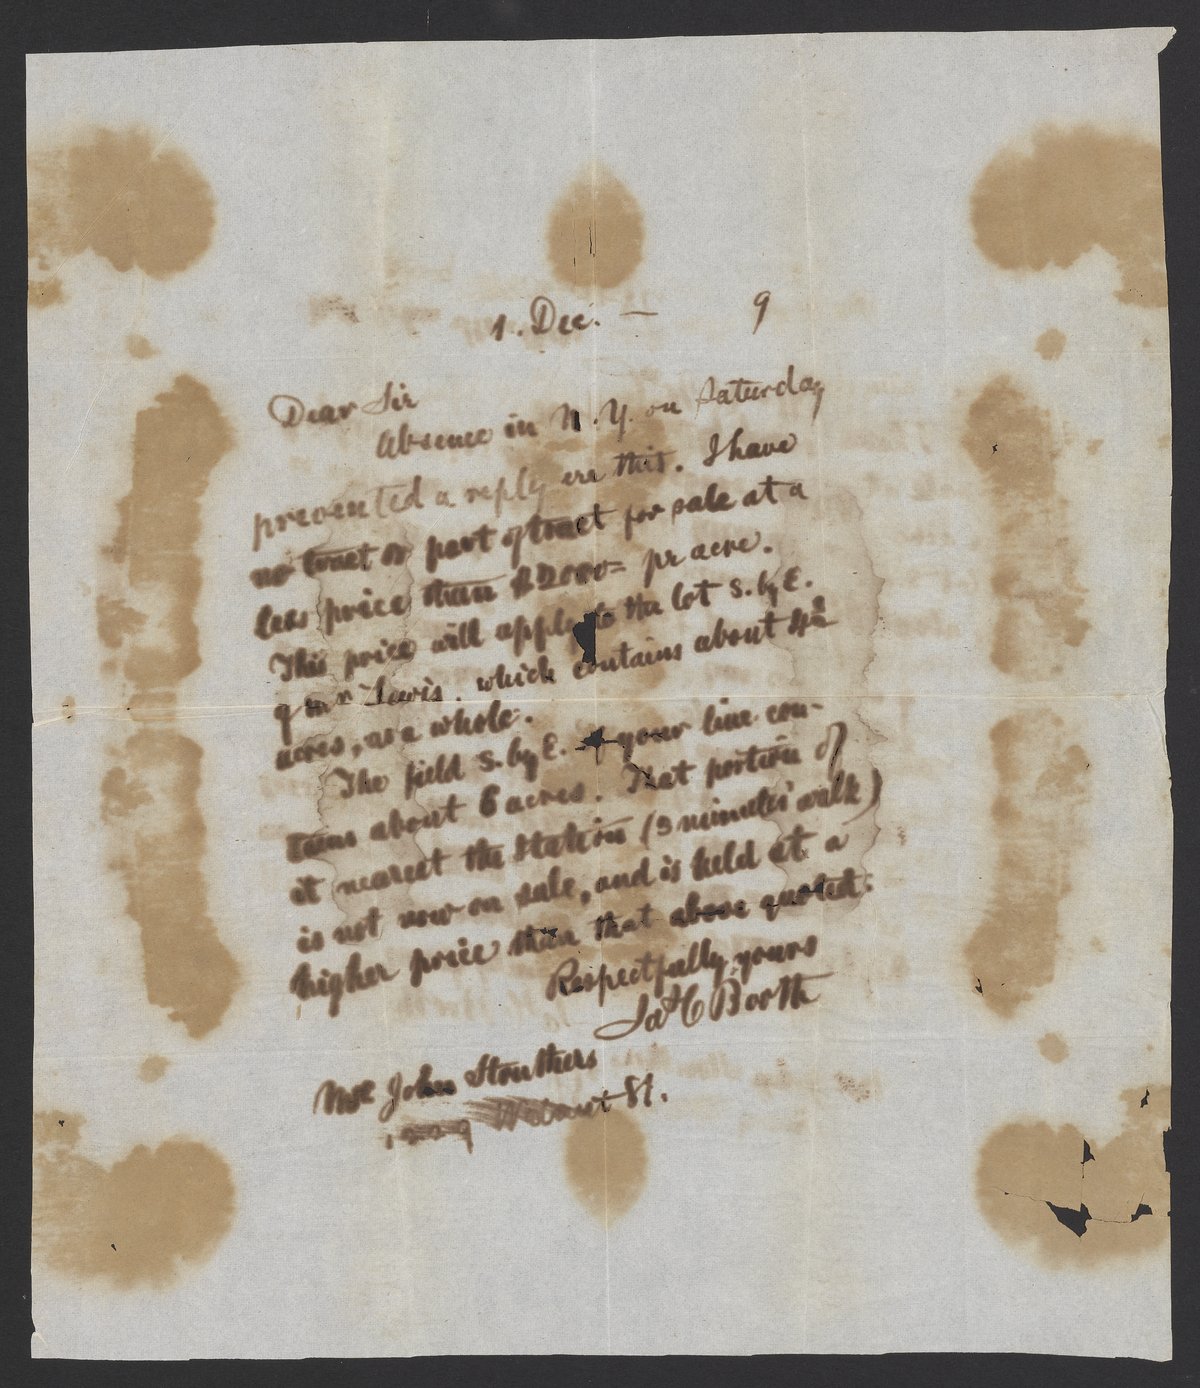 1. Dec. — 9
Dear Sir
Absence in N.Y. on Saturday
prevented a reply ere this. I have
no tract or part of tract for sale at a
less price than $2000= pr acre.
This price will apply to the lot S. by E.
of Mr Lewis, which contains about
acres, as a whole.
The field S. by E. of your line con-
tains about 6 acres. That portion of
it nearest the station (3 minutes' walk)
is not now on sale, and is held at a
higher price than that above quoted.
Respectfully yours
Jas C Booth
Mr John Struthers
1209 Walnut St.